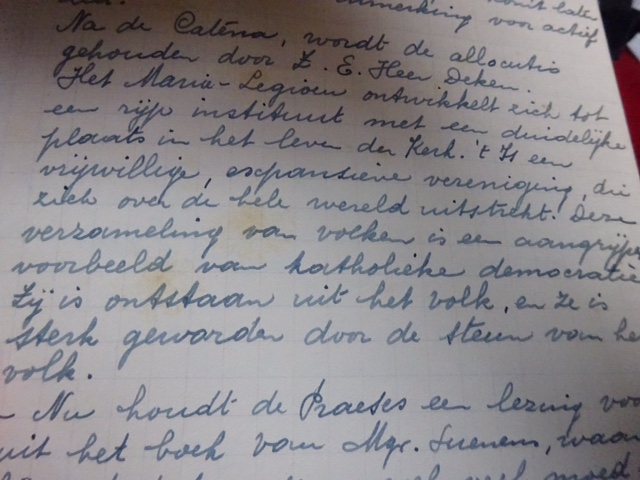 komt later
aanmerking voor actief
Na de Caténa, wordt de allocutio
gehouden door Z. E. Heer Deken.
Het Maria-Legioen ontwikkelt zich tot
een rijp instituut met een duidelijke
plaats in het leven der Kerk. 't Is een
vrijwillige, expansieve vereniging, die
zich over de hele wereld uitstrekt. Deze
verzameling van volken is een aangrijpen
voorbeeld van katholieke democratie
Zij is ontstaan uit het volk, en ze is
sterk geworden door de steun van he
volk.
- Nu houdt de Praeses een lezing voo
uit het boek van Mgr. Suenens, waar
veel moed